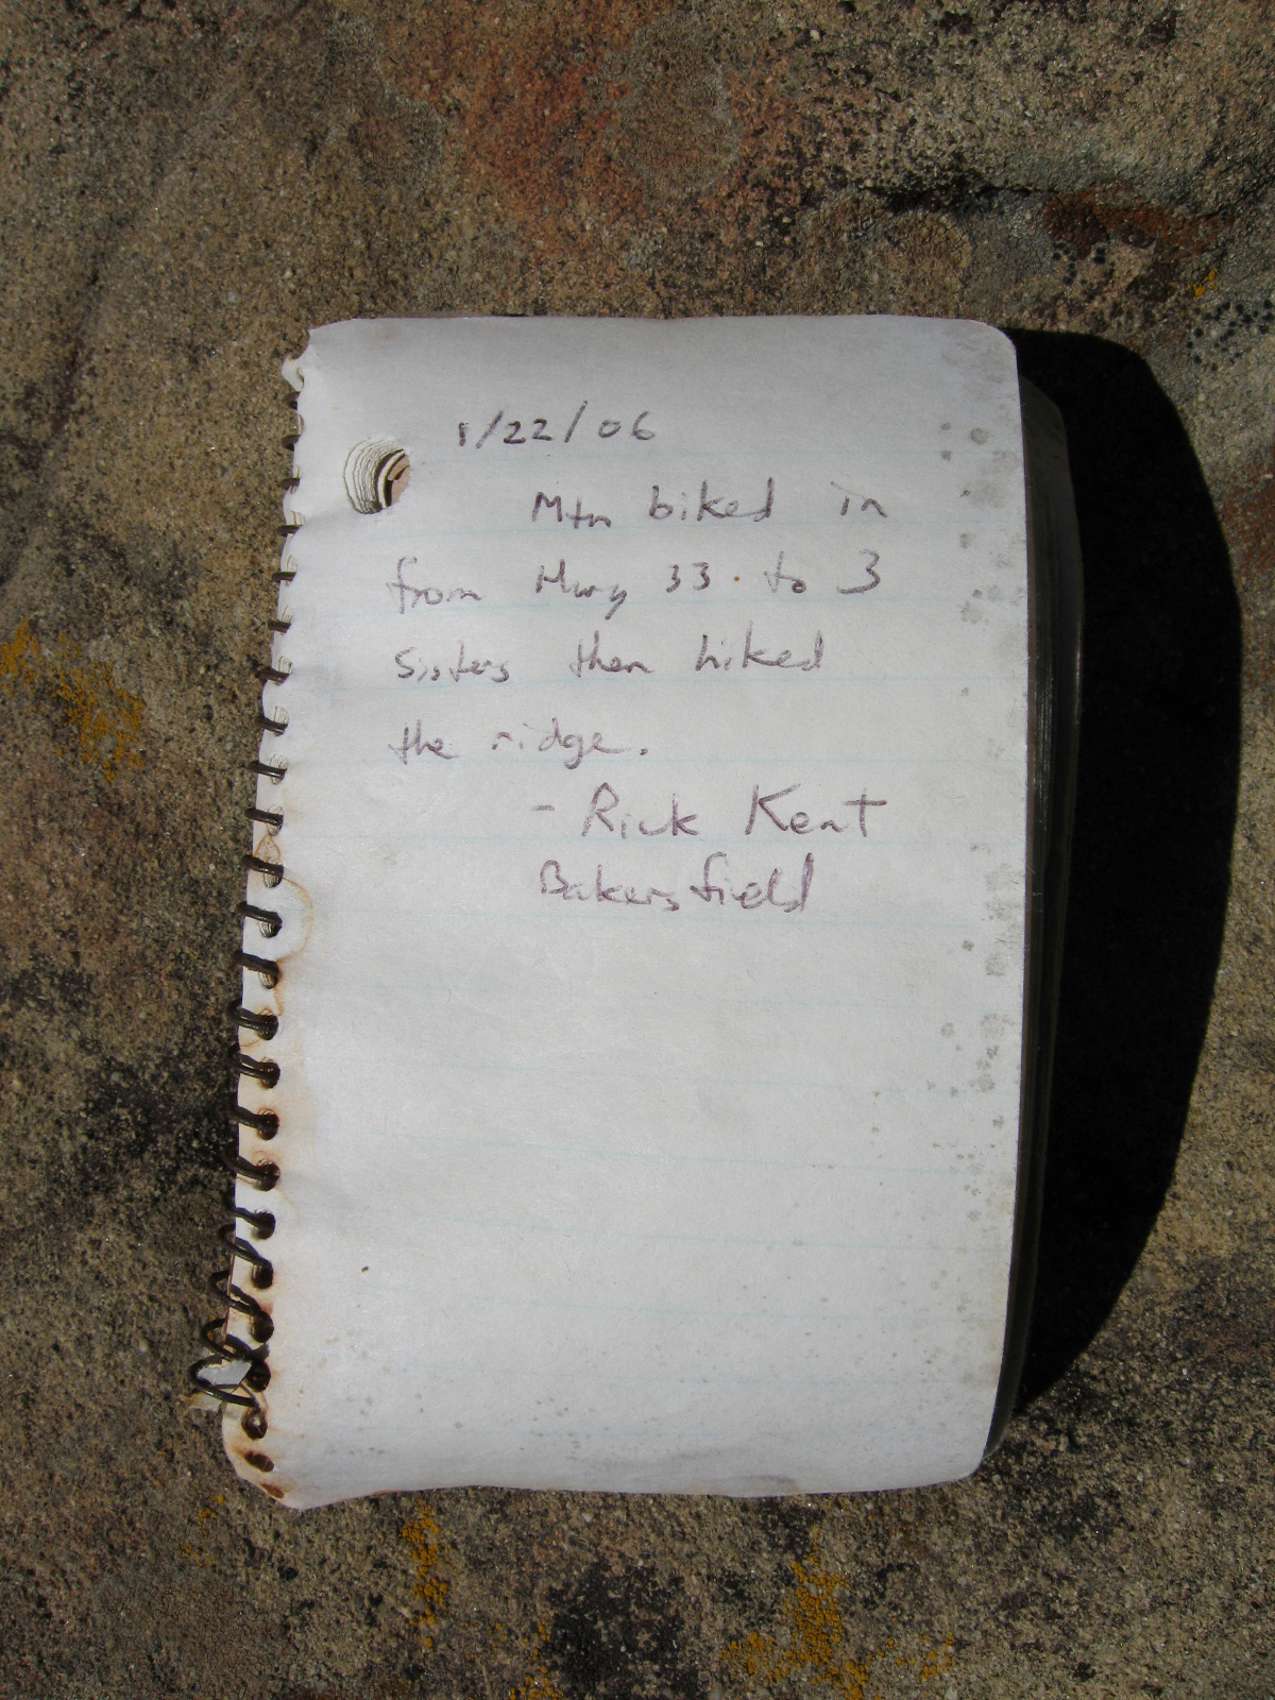 1/22/06
Mtn biked in
from Hwy 33 to 3
Sisters then hiked
the ridge.
- Rick Kent
Bakersfield